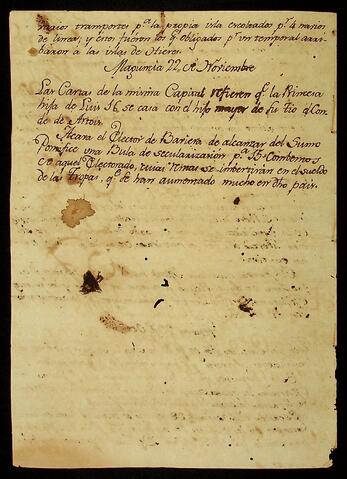 transportes pª la propia isla escoltados pr 4 navios
de linea, y estos fueron los qe obligados pr un temporal arri-
baron a las islas de Otieres.
Maguncia 22 de Noviembre
Las Cartas de la misma Capital refieren qe la Princesa
hija de Luis 16 se casa con el hijo mayor de su tio el Con
de de Artois
Acava el Elector de Baviera de alcanzar del Sumo
Pontifice una Bula de secularizacion pª 15 Combentos
de aquel Electorado, cuias rentas se imbertiran en el sueldo
de las Tropas, qe se han aumentado mucho en dho pais.